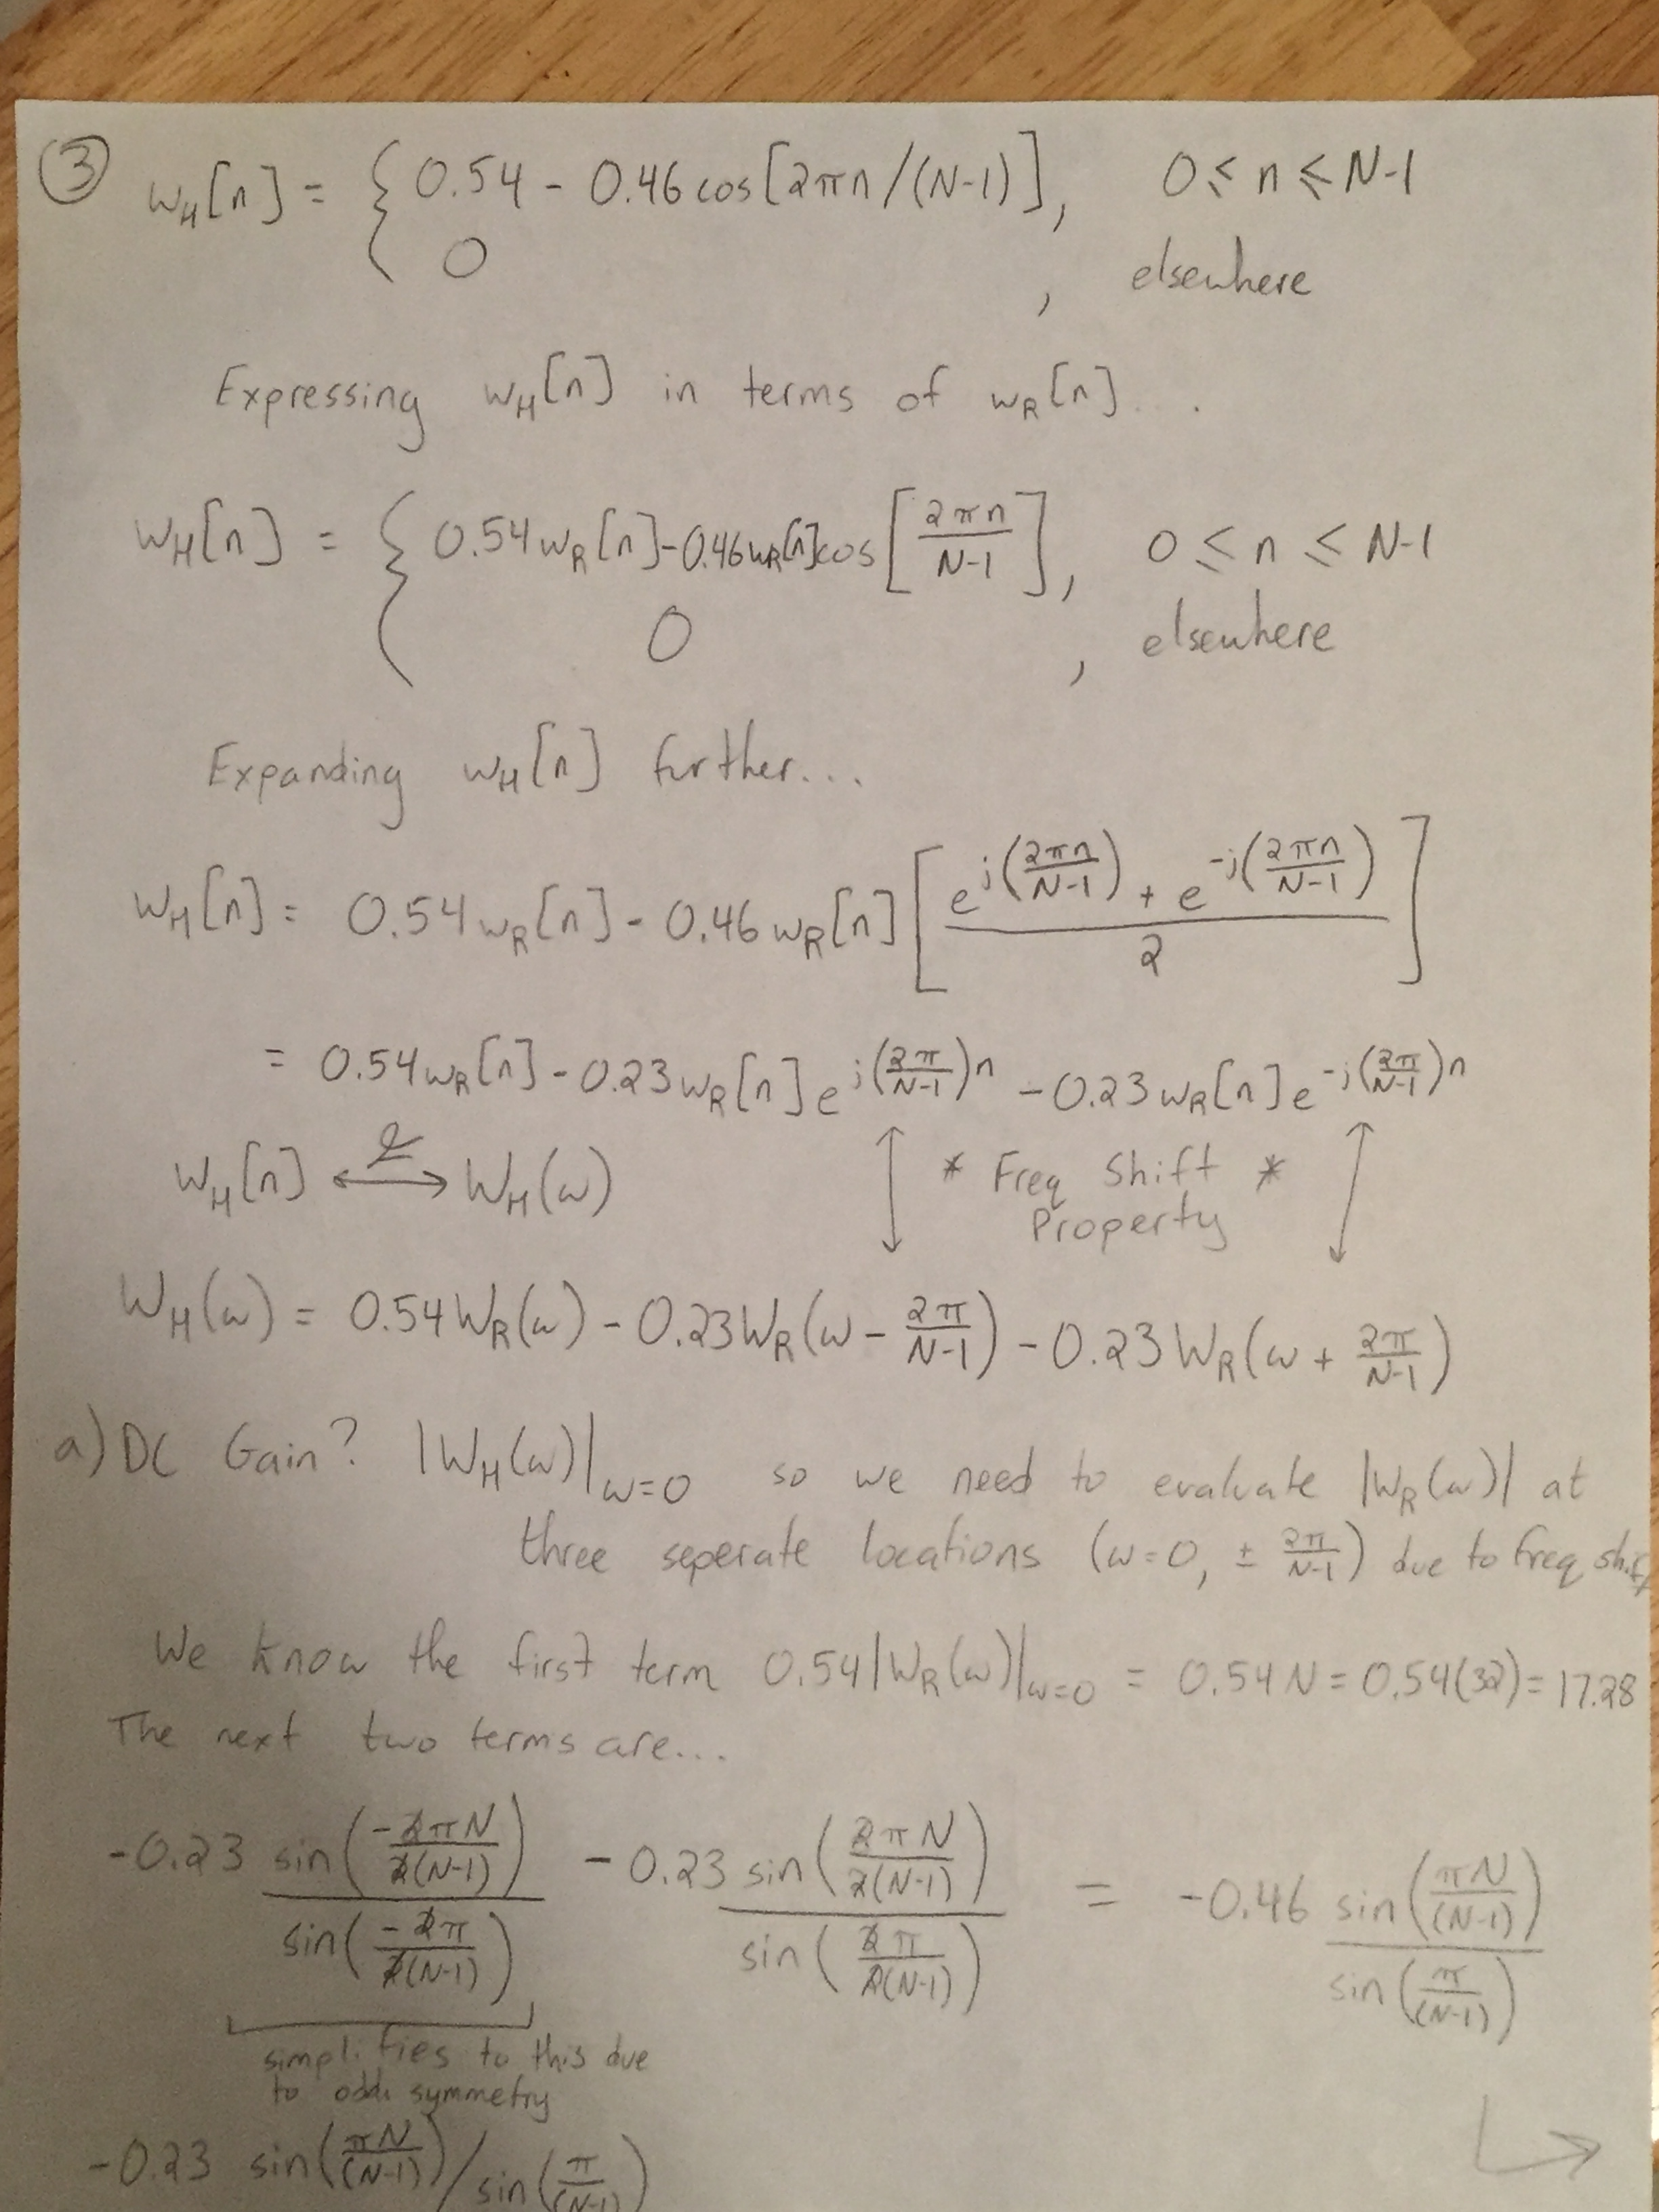 ③ w_H[n] = { 0.54 - 0.46 cos[2πn/(N-1)], 0 ≤ n ≤ N-1
0, elsewhere
Expressing w_H[n] in terms of w_R[n]...
w_H[n] = { 0.54 w_R[n] - 0.46 w_R[n] cos[2πn/(N-1)], 0 ≤ n ≤ N-1
0, elsewhere
Expanding w_H[n] further...
w_H[n] = 0.54 w_R[n] - 0.46 w_R[n] [(e^{j(2πn/(N-1))} + e^{-j(2πn/(N-1))})/2]
= 0.54 w_R[n] - 0.23 w_R[n] e^{j(2π/(N-1))n} - 0.23 w_R[n] e^{-j(2π/(N-1))n}
w_H[n] ⟷ W_H(ω) * Freq Shift *
Property
W_H(ω) = 0.54 W_R(ω) - 0.23 W_R(ω - 2π/(N-1)) - 0.23 W_R(ω + 2π/(N-1))
a) DC Gain? |W_H(ω)|_{ω=0} so we need to evaluate |W_R(ω)| at
three seperate locations (ω=0, ± 2π/(N-1)) due to freq shift
We know the first term 0.54|W_R(ω)|_{ω=0} = 0.54 N = 0.54(32) = 17.28
The next two terms are...
-0.23 sin(-2πN/2(N-1))/sin(-2π/2(N-1)) - 0.23 sin(2πN/2(N-1))/sin(2π/2(N-1)) = -0.46 sin(πN/(N-1))/sin(π/(N-1))
simplifies to this due
to odd symmetry
-0.23 sin(πN/(N-1))/sin(π/(N-1))